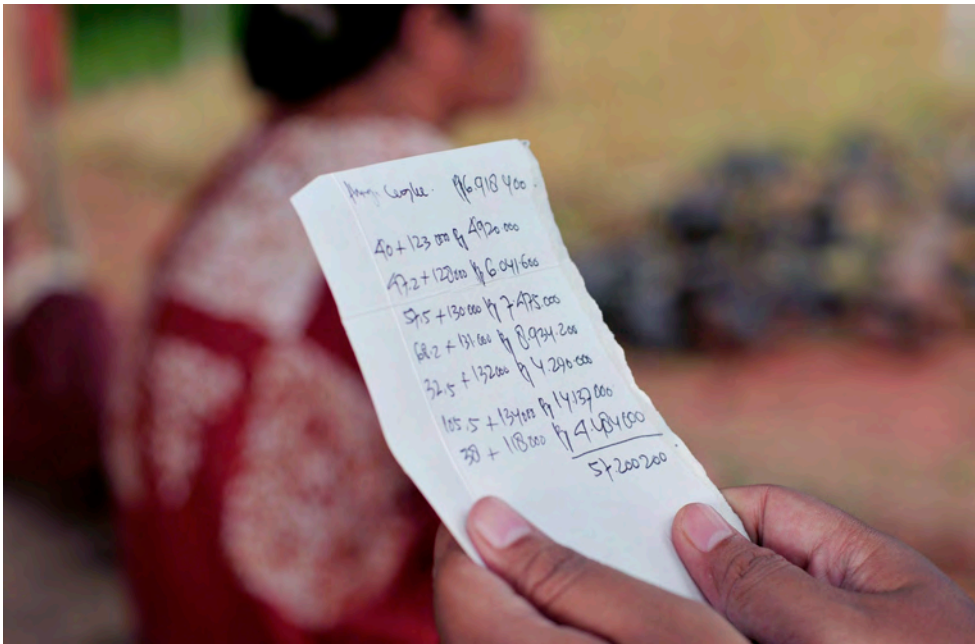 Cengke. Rp6.918.400.
40 + 123 000 Rp 4920 000
47.2 + 128000 Rp 6.041.600
57.5 + 130 000 Rp 7.475 000
68.2 + 131.000 Rp 8.934.200
32.5 + 132000 Rp 4.290.000
105.5 + 134000 Rp 14137000
38 + 118000 Rp 4.484000
57.200200